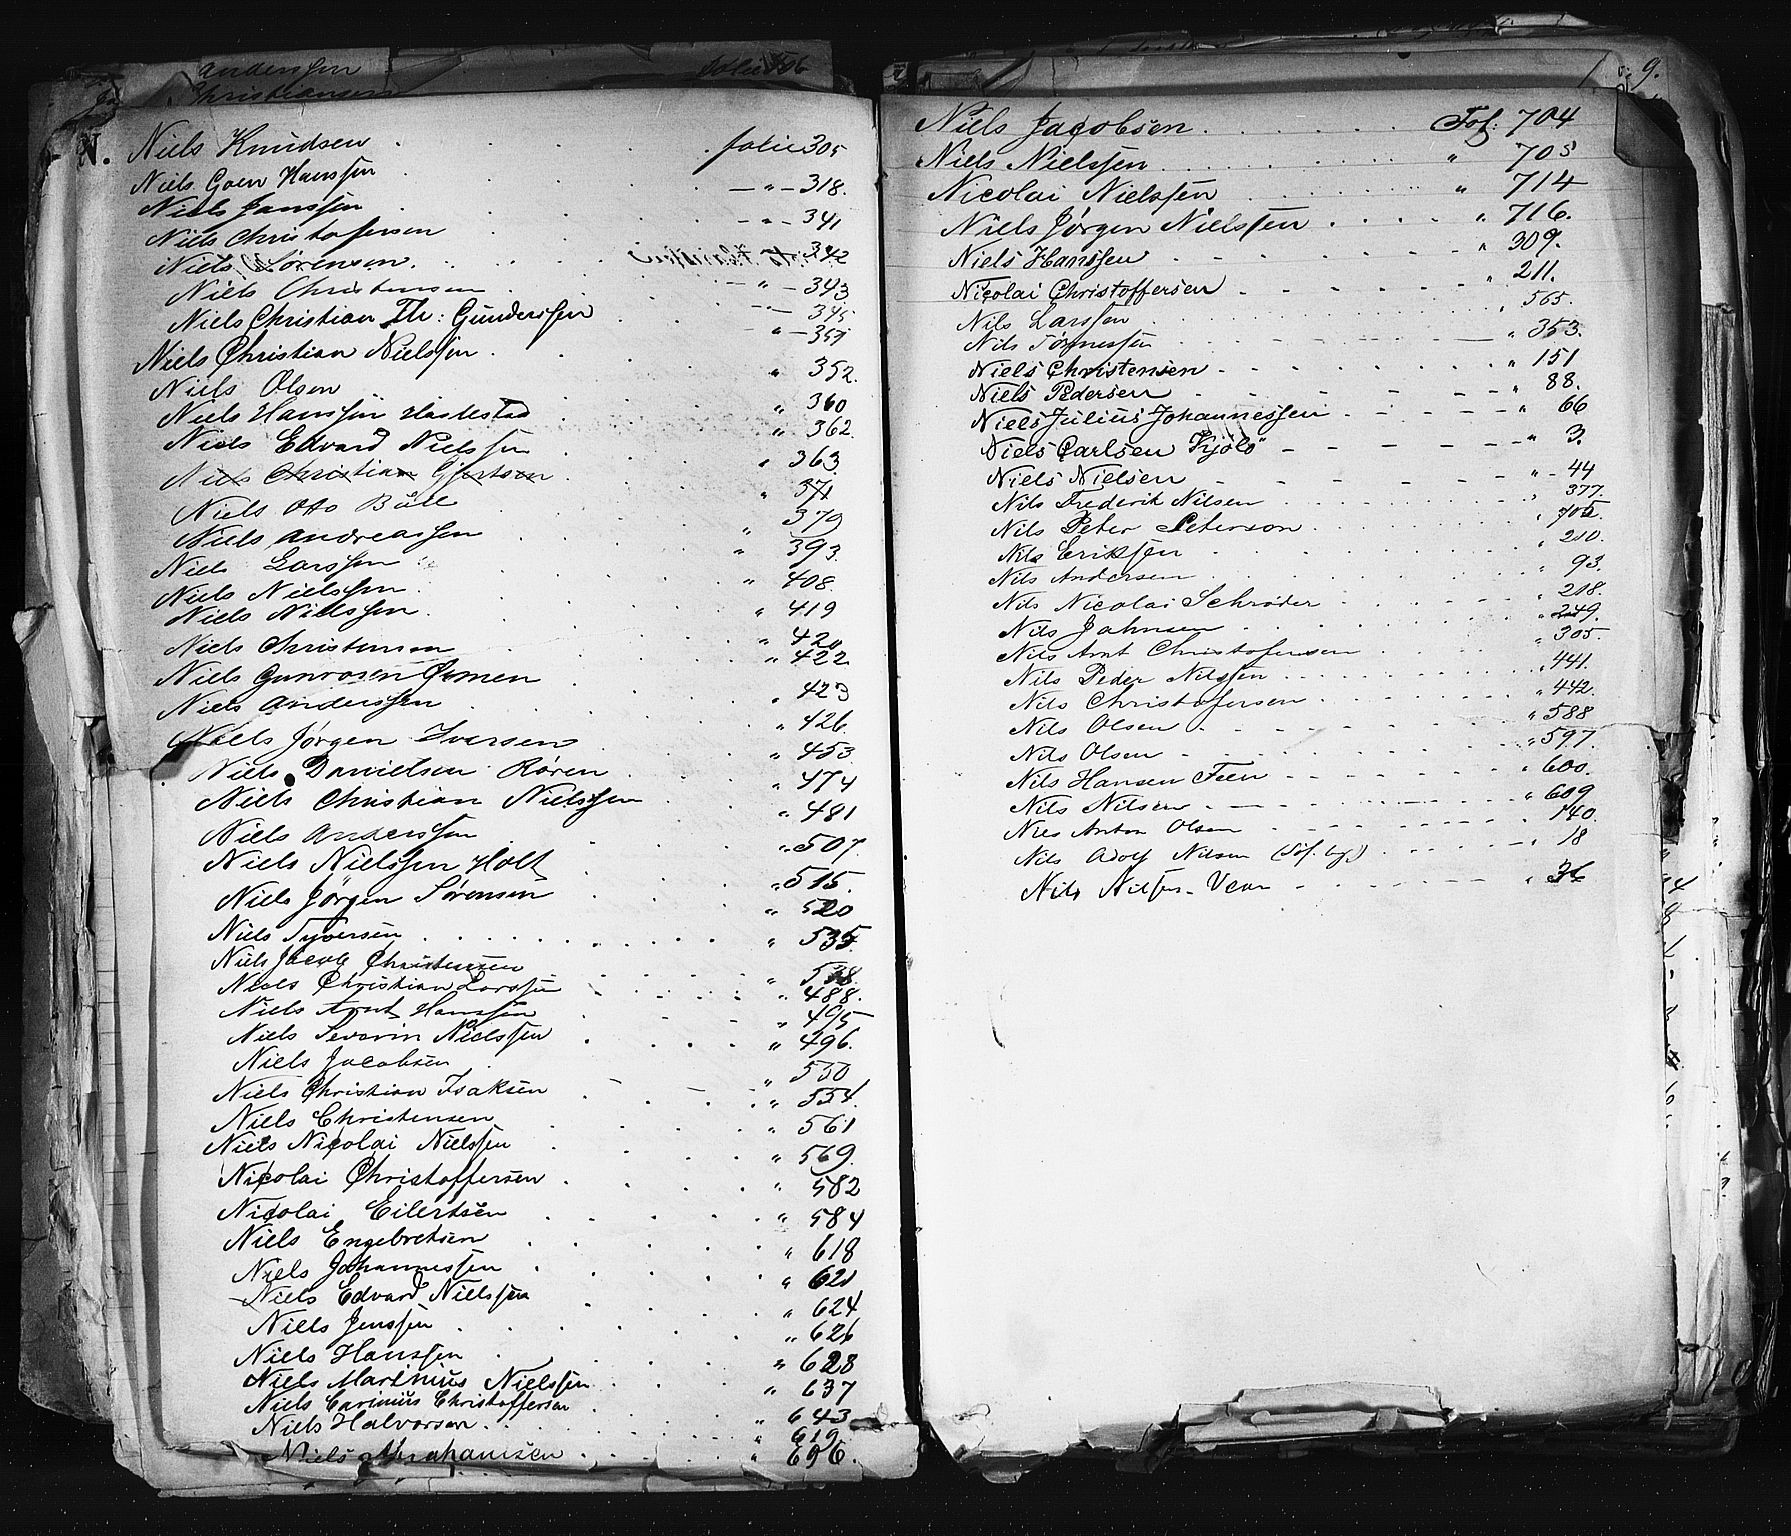 Anderssen folio 106
Christiansen
N. Niels Knudsen . . . folio 305
Niels Goen Hanssen — " — 318.
Niels Janssen — " — 341
Niels Christofersen 342
Niels Sörensen. — " — 343
Niels Christensen — " — 345
Niels Christian Th: Gunderssen " — 351
Niels Christian Nielssen. " 352.
Niels Olsen " 360
Niels Hanssen " 362.
Niels Edvard Nielssen " 363
Niels Christian Gjertsen . " 371
Niels Otto Bull 379
Niels Andreassen " 393.
Niels Larssen " 408.
Niels Nielssen " 419
Niels Nielssen . " 420
Niels Christensen " 422
Niels " 423
Niels Anderssen " 426.
Niels Jørgen Iversen " 453
Niels Danielsen Røren " 474
Niels Christian Nielssen " 481
Niels Anderssen " 507.
Niels Nielssen Holt " 515.
Niels Jørgen Sørensen " 520
Niels Syversen " 535
Niels Jacob Christensen " 538
Niels Christian Larssen " 488.
Niels Arnt Hanssen " 495
Niels Severin Nielssen " 496.
Niels Jacobsen " 550
Niels Christian Isaksen " 554.
Niels Christensen " 561
Niels Nicolai Nielssen " 569.
Nicolai Christoffersen " 582
Nicolai Eilertsen " 584
Niels Engebretsen " 618
Niels Johannessen " 621
Niels Edvard Nielssen " 624
Niels Jenssen " 626
Niels Hanssen " 628
Niels Marinius Nielssen " 637
Niels Carinius Christoffersen " 643
Niels Halvorsen " 619.
Niels Abrahamsen " 696.
9.
Niels Jacobsen . . . Fol: 704
Niels Nielssen " 705
Nicolai Nielssen " 714
Niels Jørgen Nielssen " 716.
Niels Hanssen " 309.
Nicolai Christoffersen " 211.
Nils Larssen " 565.
Nils Tønnessen " 353.
Niels Christensen " 151
Niels Pedersen " 88.
Niels Julius Johannessen " 66
Niels Carlsen "Kjölö" " 3.
Niels Nielsen " - 44
Nils Frederik Nilsen " 377.
Nils Peter Peterson " 705.
Nils Erikssen " 210.
Nils Andersen " 93.
Nils Nicolai Schrøder " 218.
Nils Johnsen " 249.
Nils Arnt Christofersen " 305
Nils Peder Nilssen " 441.
Nils Christofersen " 442.
Nils Olsen " 588
Nils Olsen " 597.
Nils Hansen Teen " 600.
Nils Nilsen " 609
Niels Anton Olsen 140.
Nils Adolf Nilsen " 18
Nils Nilssen Vear " 36